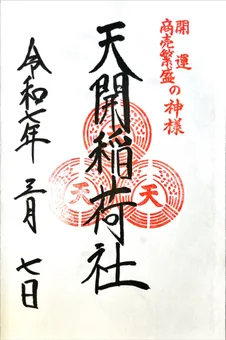 開運
商売繁盛の神様
天開稲荷社
天
天
令和七年 三月 七日